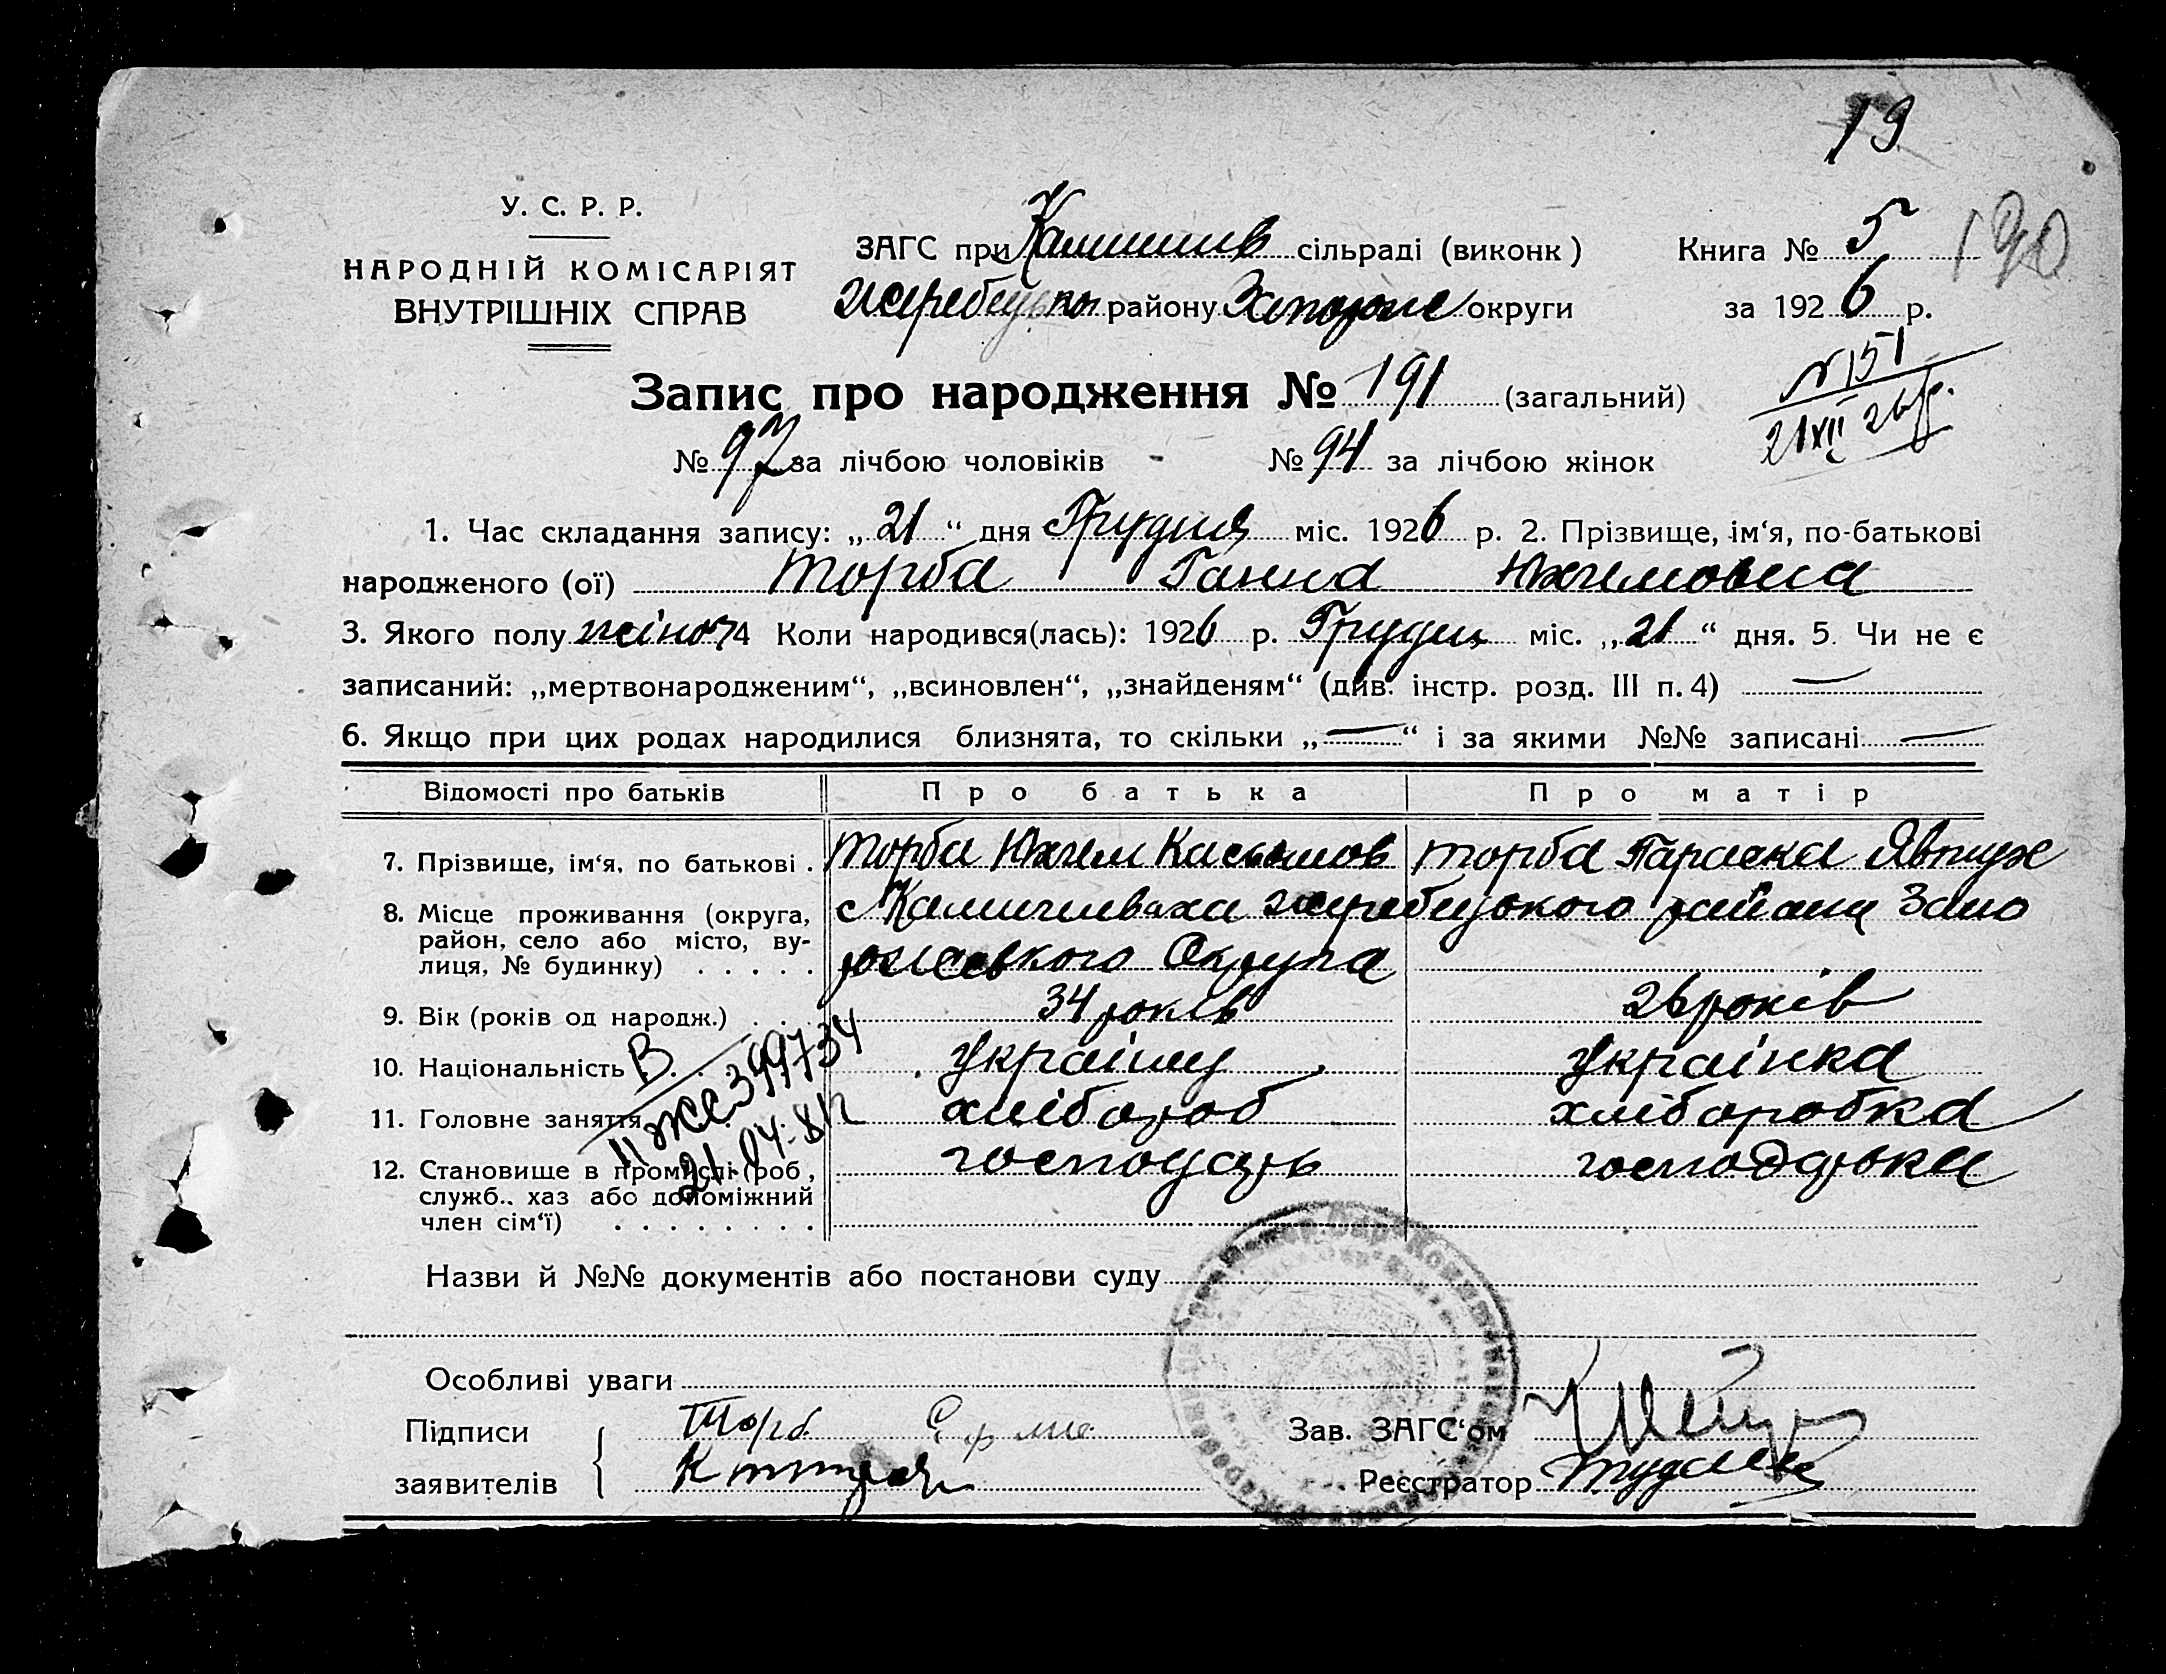 19
У. С. Р. Р.
НАРОДНІЙ КОМІСАРІЯТ
ВНУТРІШНІХ СПРАВ
ЗАГС при Камишив сільраді (виконк)
Книга № 5
190
Жеребецьк району Запоріж округи
за 1926 р.
Запис про народження № 191 (загальний)
№ 151
21 XII 26 р.
№ 97 за лічбою чоловіків - № 94 за лічбою жінок
1. Час складання запису: „21“ дня Грудня міс. 1926 р. 2. Прізвище, ім‘я, по-батькові
народженого (ої) Торба Ганна Юхимовна
3. Якого полу жіноч 4 Коли народився(лась): 1926 р. Грудня міс. „21“ дня. 5. Чи не є
записаний: „мертвонародженим“, „всиновлен“, „знайденям“ (див. інстр. розд. III п. 4) —
6. Якщо при цих родах народилися близнята, то скільки „—“ і за якими №№ записані —
Відомості про батьків Про батька Про матір
7. Прізвище, ім‘я, по батькові . Торба Юхим Касьянов Торба Параска Явтух
8. Місце проживання (округа, район, село або місто, вулиця, № будинку) . . . . . с Камишеваха жеребецького района Запо
ріжського Округа
9. Вік (років од народж.) . . 34 років 26 років
10. Національність . українець українка
11. Головне заняття хлібороб хлібаробка
12. Становище в промислі (роб, служб.. хаз або допоміжний член сім‘ї) . . . . . . . . господарь господарька
В.
II ЖС 399734
21.04.81
Назви й №№ документів або постанови суду
Особливі уваги
Підписи заявителів
Торб.
Зав. ЗАГС‘ом
Реєстратор